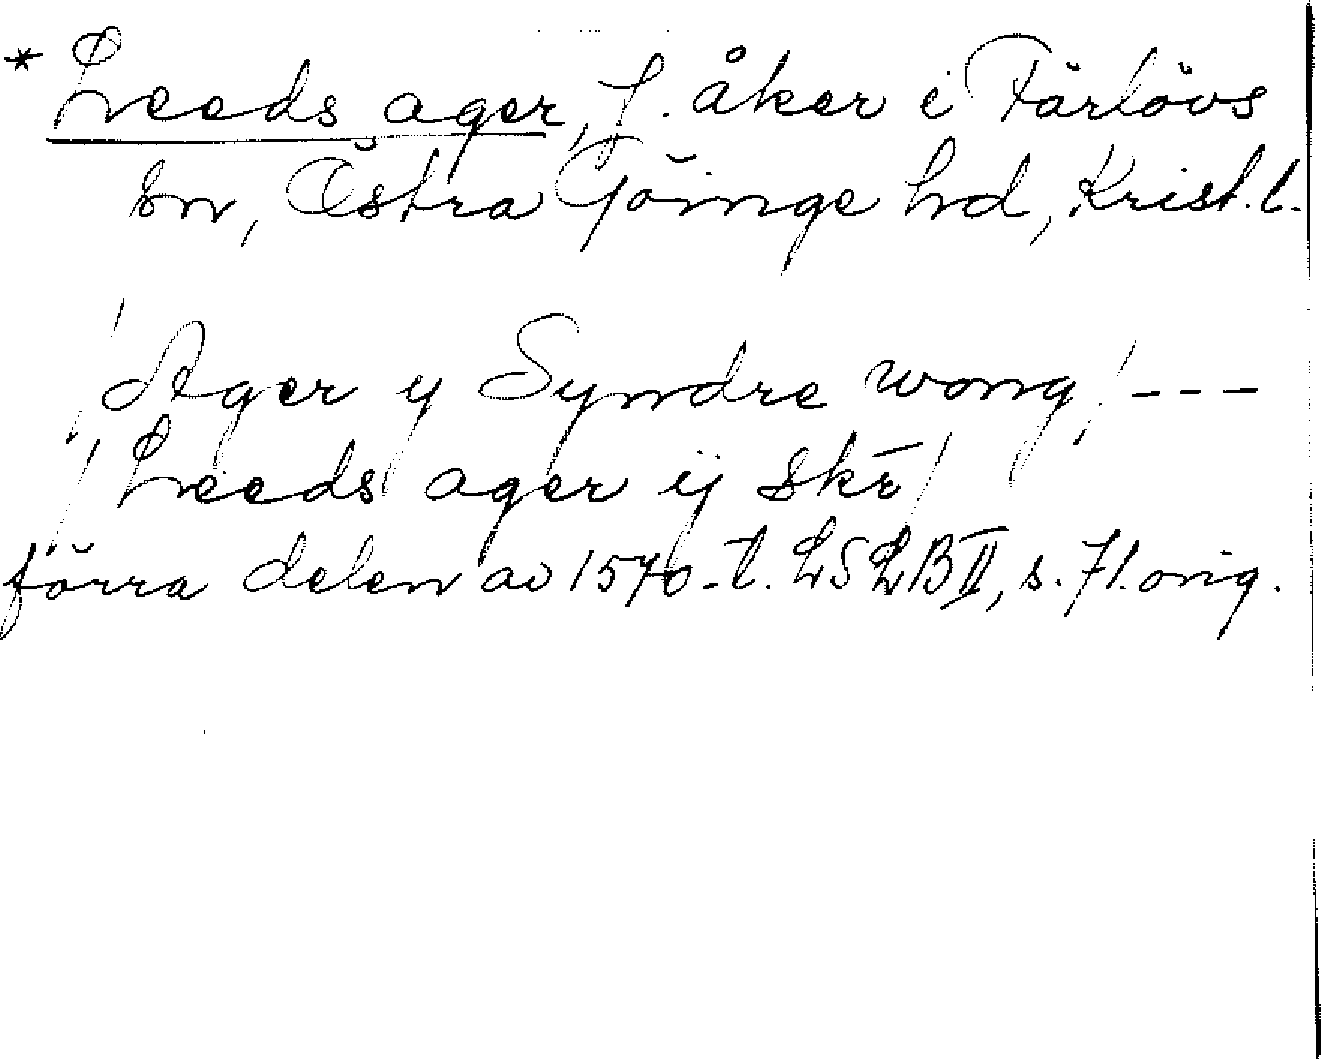 * Leeds ager, f. åker i Färlövs
sn, Östra Göinge hd, Krist. l.
/Ager y Syndre wong/---
/Leeds ager ij skē/
förra delen av 1570-t. LSLB II, s. 71. orig.